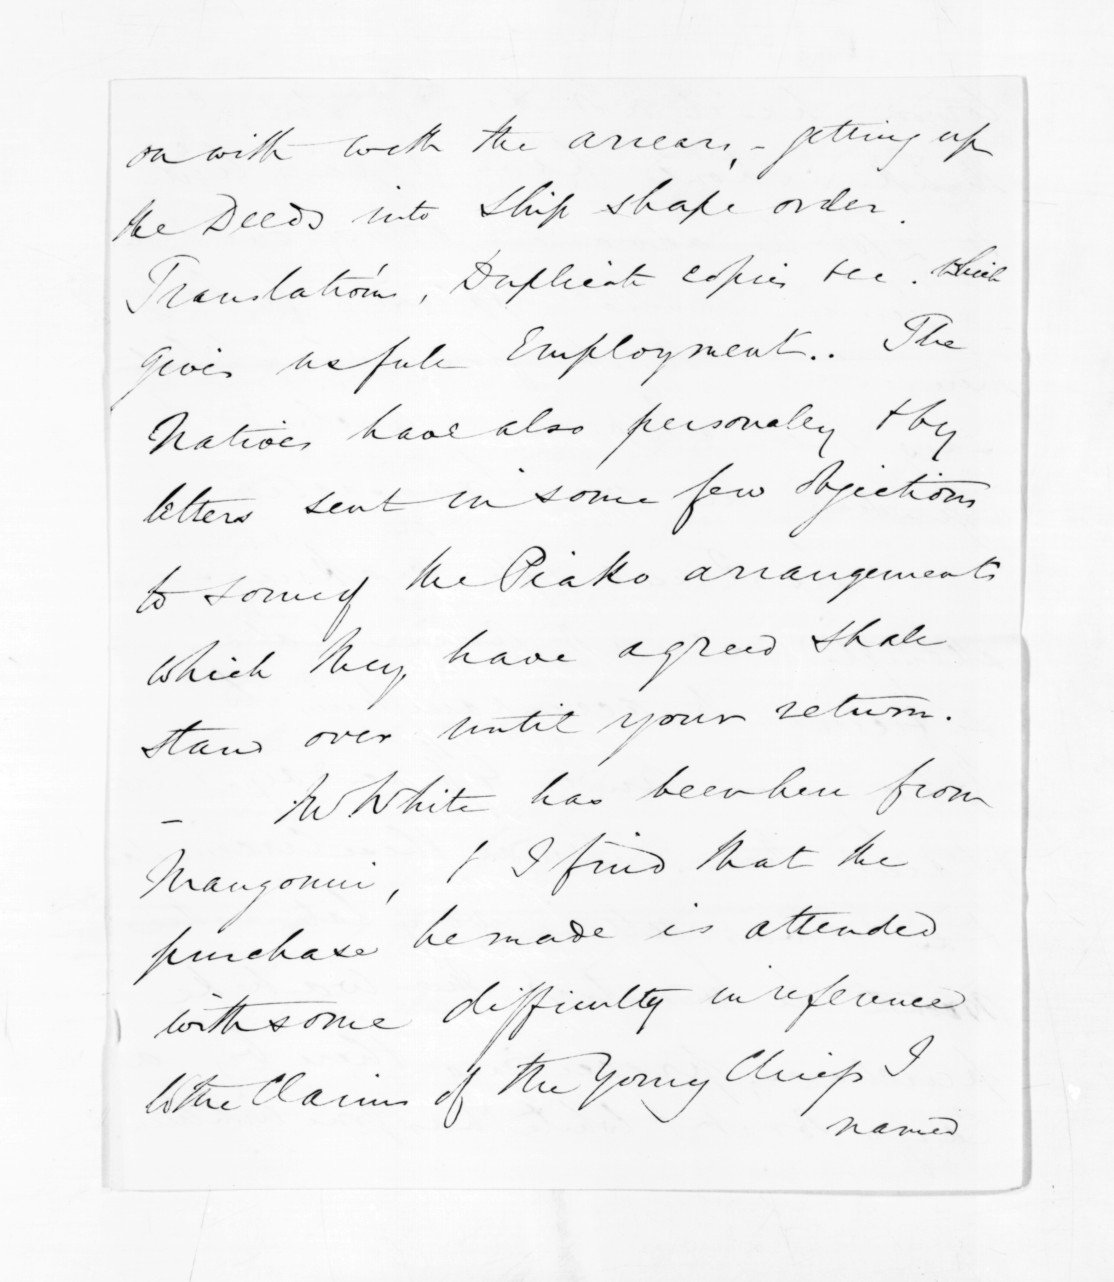 on with with the arrears, - getting up
the Deeds into ship shape order.
Translations, Duplicate copies &c. which
gives usfull Employment.. The
Natives have also personaly & by
letters sent in some few objections
to some of the Piako arrangements
which they have agreed shall
stand over until your return.
- Mr White has been here from
Mangonui, & I find that the
purchase he made is attended
with some difficulty in reference
to the Claims of the Young Chiefs I
named